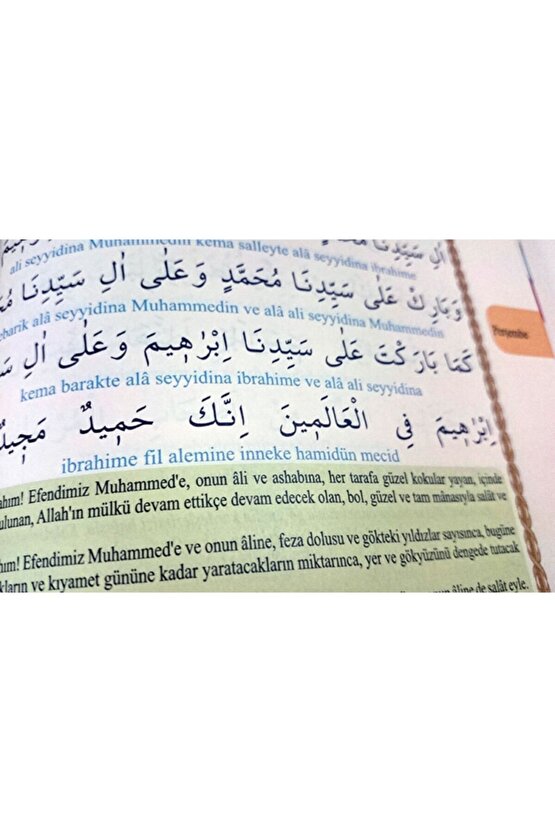 اٰلِ سَيِّدِنَا
ali seyyidina Muhammedin kema salleyte alâ seyyidina ibrahime
وَبَارِكْ عَلٰى سَيِّدِنَا مُحَمَّدٍ وَعَلٰى اٰلِ سَيِّدِنَا
ebarik alâ seyyidina Muhammedin ve alâ ali seyyidina Muhammedin
Perşembe
كَمَا بَارَكْتَ عَلٰى سَيِّدِنَا اِبْرٰهٖيمَ وَعَلٰى اٰلِ
kema barakte alâ seyyidina ibrahime ve alâ ali seyyidina
اِبْرٰهٖيمَ فِى الْعَالَمٖينَ اِنَّكَ حَمٖيدٌ مَجٖيدٌ
ibrahime fil alemine inneke hamidün mecid
ahım! Efendimiz Muhammed'e, onun âli ve ashabına, her tarafa güzel kokular yayan, içinde
ulunan, Allah'ın mülkü devam ettikçe devam edecek olan, bol, güzel ve tam mânasıyla salât ve
hım! Efendimiz Muhammed'e ve onun âline, feza dolusu ve gökteki yıldızlar sayısınca, bugüne
kların ve kıyamet gününe kadar yaratacakların miktarınca, yer ve gökyüzünü dengede tutacak
âline de salât eyle.